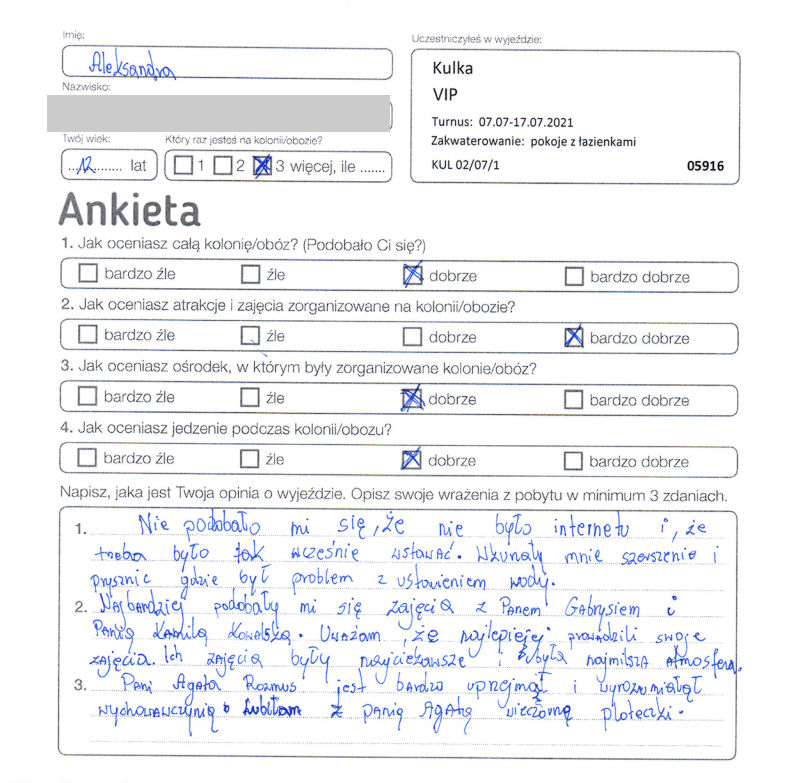 Imię:
Aleksandra
Uczestniczyłeś w wyjeździe:
Kulka
VIP
Turnus: 07.07-17.07.2021
Zakwaterowanie: pokoje z łazienkami
KUL 02/07/1 05916
Nazwisko:
Twój wiek: Który raz jesteś na kolonii/obozie?
...12........ lat 1 2 3 więcej, ile .......
Ankieta
1. Jak oceniasz całą kolonię/obóz? (Podobało Ci się?)
bardzo źle źle dobrze bardzo dobrze
2. Jak oceniasz atrakcje i zajęcia zorganizowane na kolonii/obozie?
bardzo źle źle dobrze bardzo dobrze
3. Jak oceniasz ośrodek, w którym były zorganizowane kolonie/obóz?
bardzo źle źle dobrze bardzo dobrze
4. Jak oceniasz jedzenie podczas kolonii/obozu?
bardzo źle źle dobrze bardzo dobrze
Napisz, jaka jest Twoja opinia o wyjeździe. Opisz swoje wrażenia z pobytu w minimum 3 zdaniach.
1. Nie podobało mi się, że nie było internetu i, że
trzeba było tak wcześnie wstawać. mnie szerszenie i
prysznic gdzie był problem z ustawieniem wody.
2. Najbardziej podobały mi się zajęcia z Panem Gabrysiem i
Panią Kamilą Kowalską. Uważam, że najlepiej prowadzili swoje
zajęcia. Ich zajęcia były najciekawsze i była najmilsza atmosfera.
3. Pani Agata Rozmus jest bardzo uprzejmą i wyrozumiałą
wychowawczynią. Lubiłam z panią Agatą wieczorne ploteczki.